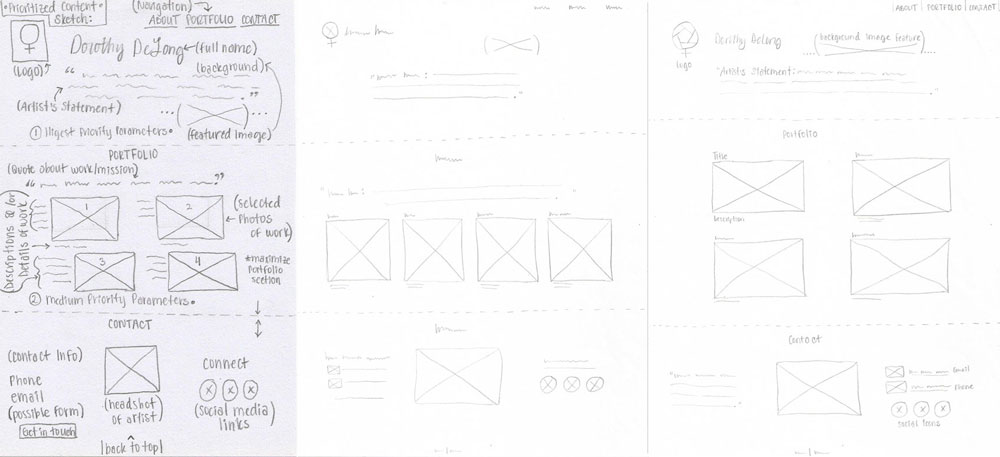 *Prioritized Content*
Sketch:
(Navigation)
ABOUT PORTFOLIO CONTACT
Dorothy DeLong
(full name)
(Logo)
(background)
(Artist's Statement)
(featured Image)
① Highest Priority Parameters.
PORTFOLIO
(Quote about work/mission)
Descriptions &/or
Details of work
1
2
(selected
Photos
of work)
3
4
*maximize
Portfolio
section
② medium Priority Parameters.
CONTACT
(Contact Info)
Phone
email
(possible form)
Get in touch
(headshot
of artist)
connect
(social media
links)
|back to top|
|ABOUT|PORTFOLIO|CONTACT|
logo
Dorothy DeLong
(background Image Feature)
"Artist's Statement:
Portfolio
Title
Description
Contact
Email
Phone
Social Icons